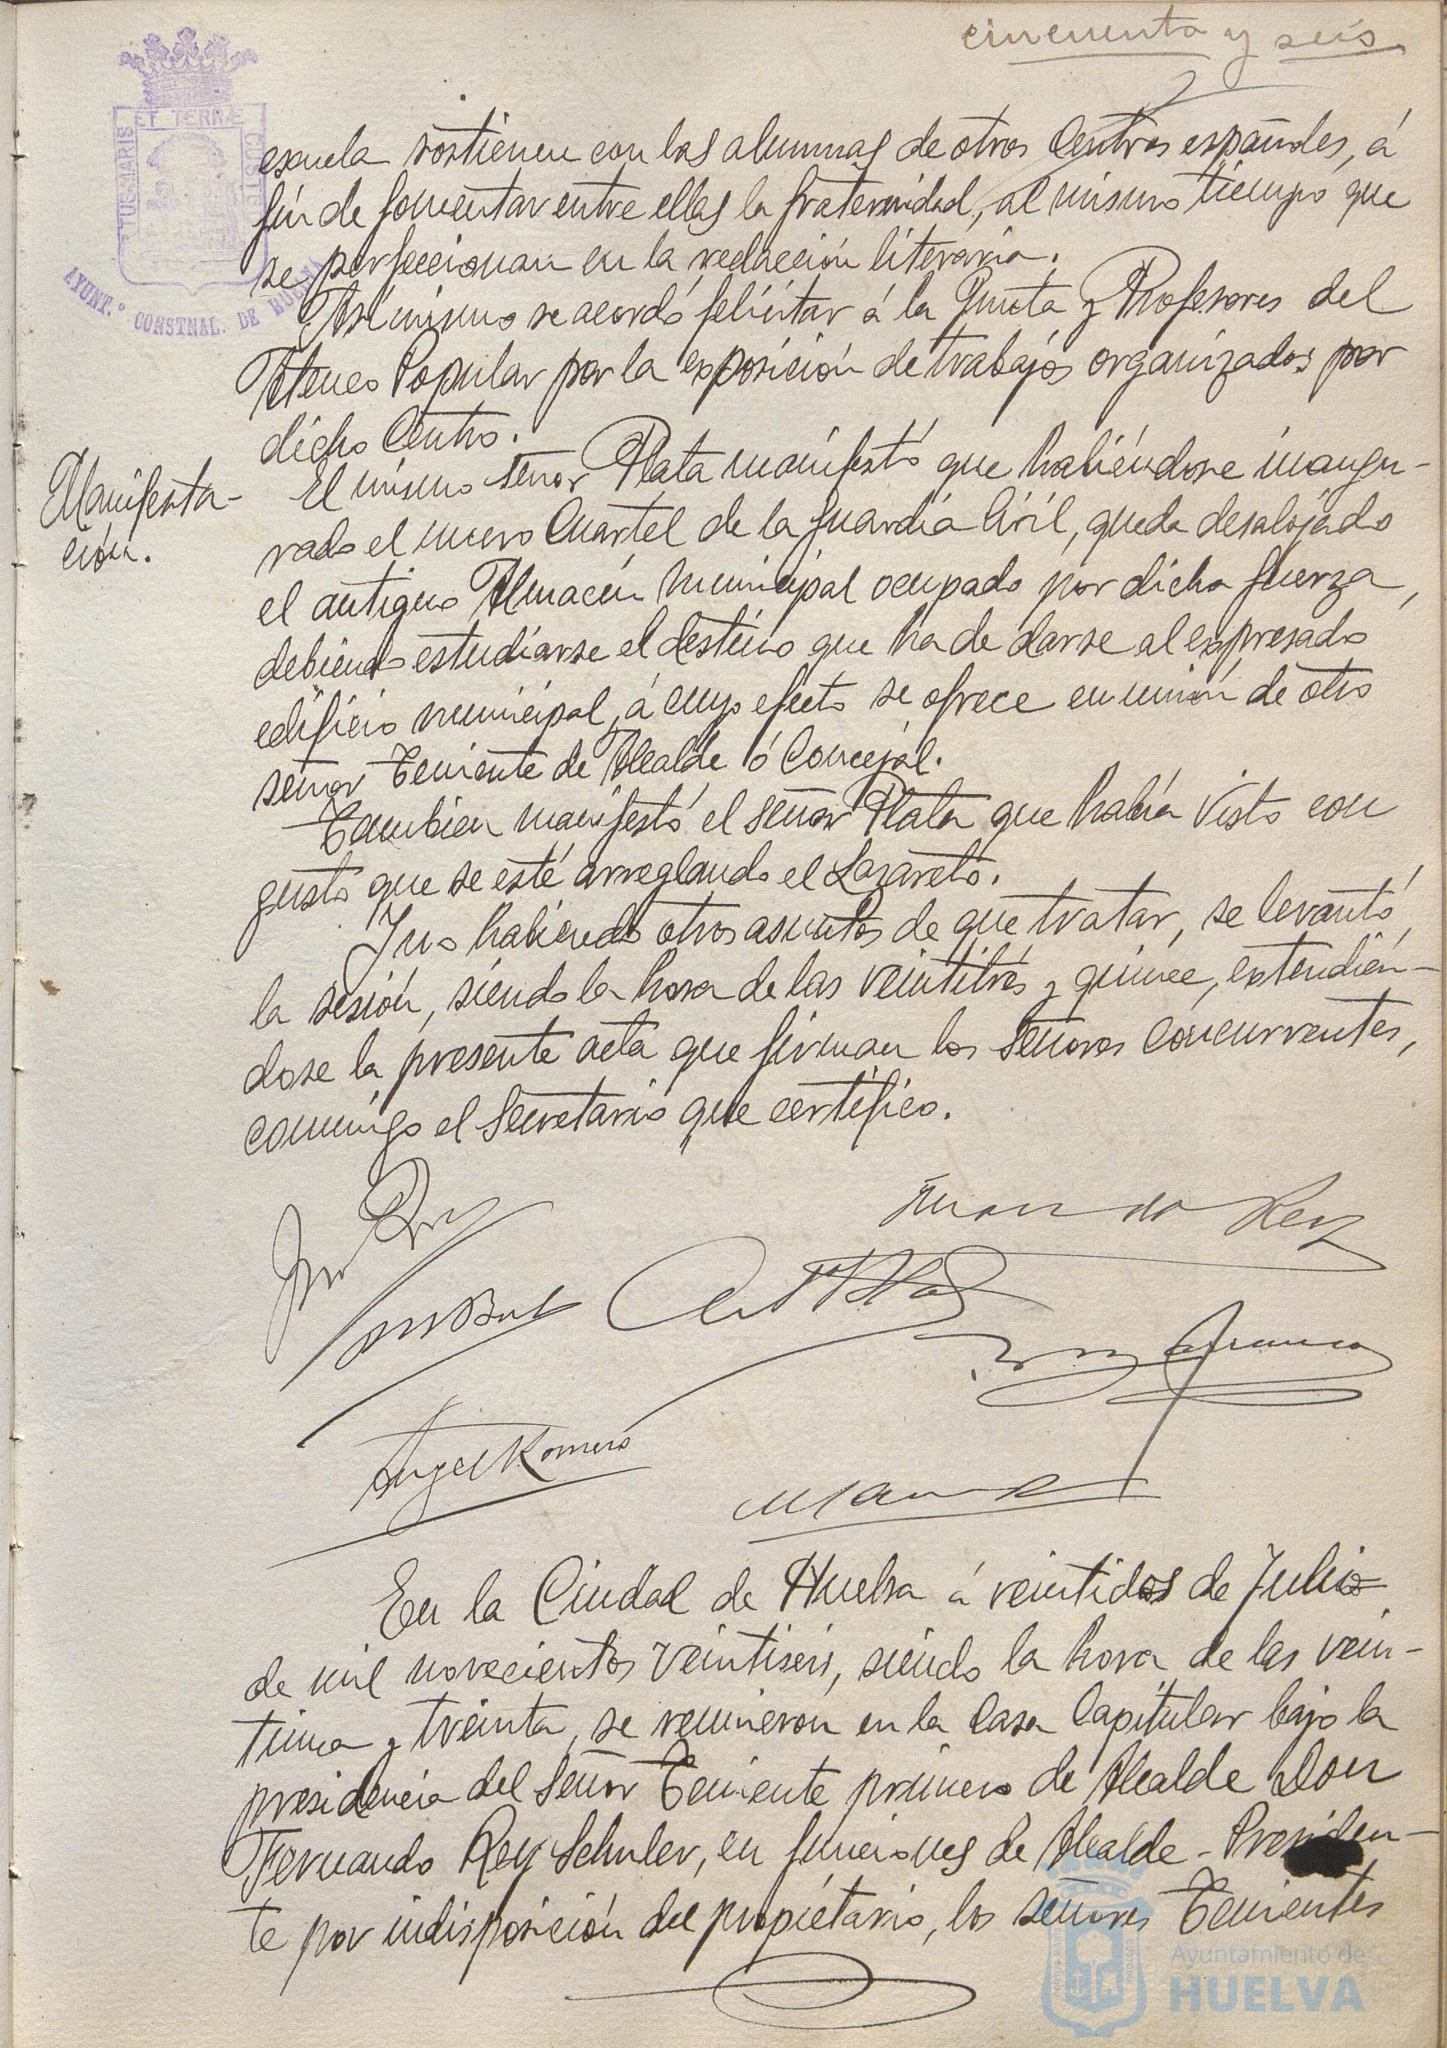 cincuenta y seis
PORTUS MARIS ET TERRÆ CUSTODIA
AYUNT.º CONSTNAL. DE HUELVA
escuela sostienen con las alumnas de otros Centros españoles, á
fin de fomentar entre ellas la fraternidad, al mismo tiempo que
se perfeccionan en la redacción literaria.
Asimismo se acordó felicitar á la Junta y Profesores del
Ateneo Popular por la exposición de trabajos organizados por
dicho Centro.
Manifesta-
ción.
El mismo señor Plata manifestó que habiéndose inaugu-
rado el nuevo Cuartel de la Guardia Civil, queda desalojado
el antiguo Almacén municipal ocupado por dicha fuerza,
debiendo estudiarse el destino que ha de darse al expresado
edificio municipal, á cuyo efecto se ofrece en unión de otro
señor Teniente de Alcalde ó Concejal.
Tambien manifestó el señor Plata que había visto con
gusto que se esté arreglando el Lazareto.
Y no habiendo otros asuntos de que tratar, se levantó
la sesión, siendo la hora de las veintitrés y quince, extendién-
dose la presente acta que firman los señores concurrentes,
conmigo el Secretario que certifico.
Fernando Rey
Angel Romero
En la Ciudad de Huelva á veintidos de Julio
de mil novecientos veintiseis, siendo la hora de las vein-
tiuna y treinta, se reunieron en la Casa Capitular bajo la
presidencia del señor Teniente primero de Alcalde Don
Fernando Rey Schuler, en funciones de Alcalde-Presiden-
te por indisposición del propietario, los señores Tenientes
Ayuntamiento de
HUELVA